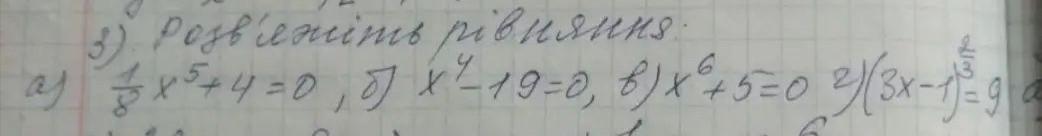 3) Розв'яжіть рівняння:
а) 1/8 x⁵ + 4 = 0, б) x⁴ - 19 = 0, в) x⁶ + 5 = 0 г) (3x - 1)^(2/3) = 9